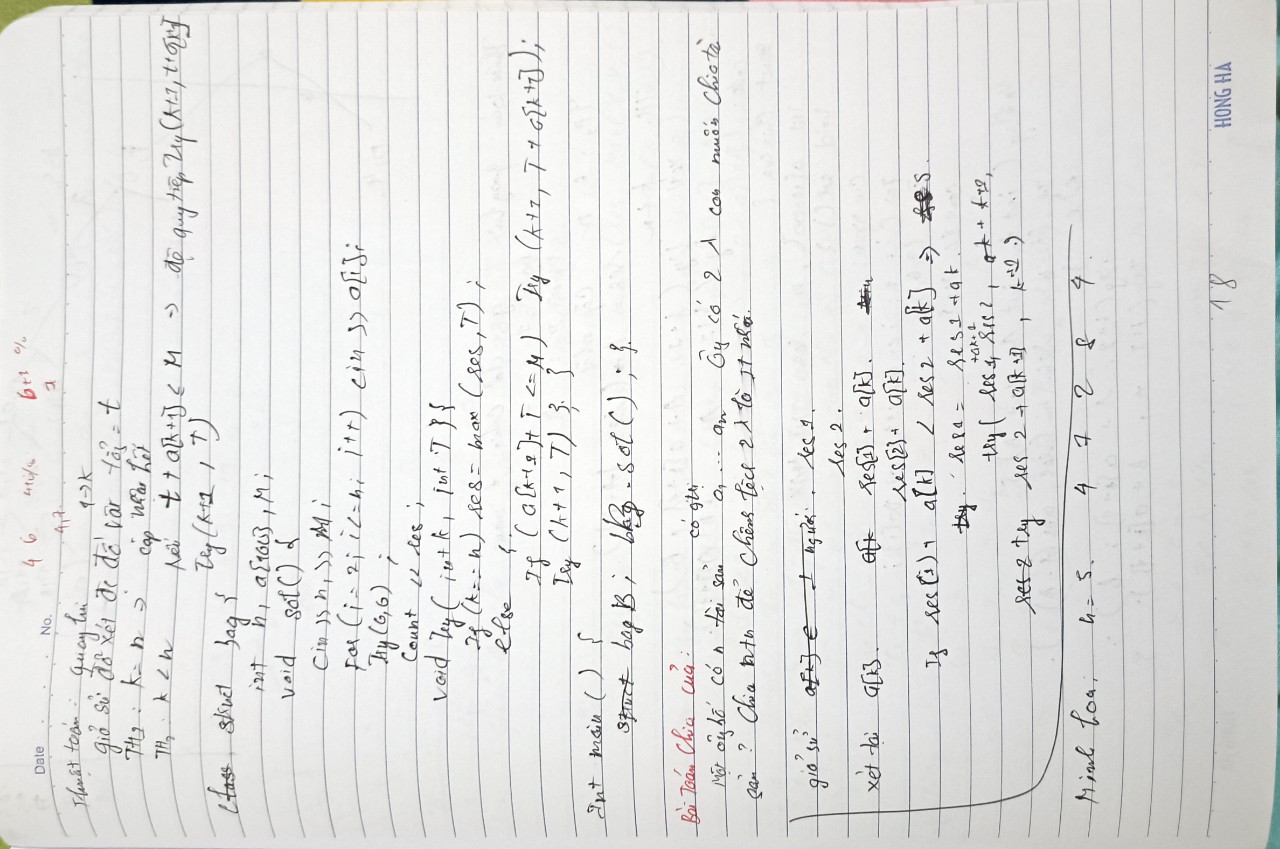 4 6 6+1 %
Date No. 7
4,7
Thuật toán: quay lui 1->k
giả sử đã xét đc đồ vật tổng = t
TH1: k = n => cập nhật kết
TH2: k < n Nếu t + a[k+1] < M => đệ quy tiếp Try(k+1, t+a[k+1]
Try(k+1, T)
class struct bag {
int n, a[100], M;
void sol() {
cin >> n, >> M;
For (i = 2; i<=n; i++) cin >> a[i];
Try(0,0);
Count << res;
void Try( int k, int T }{
If (k==n) res = max (res, T);
else {
If (a[k+1]+T <= M) Try (k+1, T + a[k+1]);
Try (k+1, T) } }
Int main () {
struct bag B; bag.sol(); }
Bài Toán Chia của:
có giá
Một ông bố có n tài sản a1 ... an Ông có 2 λ con muốn chia tài
sản? Chia ntn để chênh lệch 2 λ là ít nhất.
giả sử a[k] e 1 người. res 1.
res 2.
xét tài a[k]. a[k res[1] + a[k].
res[2] + a[k].
If res[1] + a[k] < res 2 + a[k] =>
try. res1 = res1 + ak.
+ak+1
try( res1, res2, ak + k+1,
res 2 try res 2 + a[k+1], k+1)
Minh họa: n = 5. 4 7 2 8 4
18 HONG HA